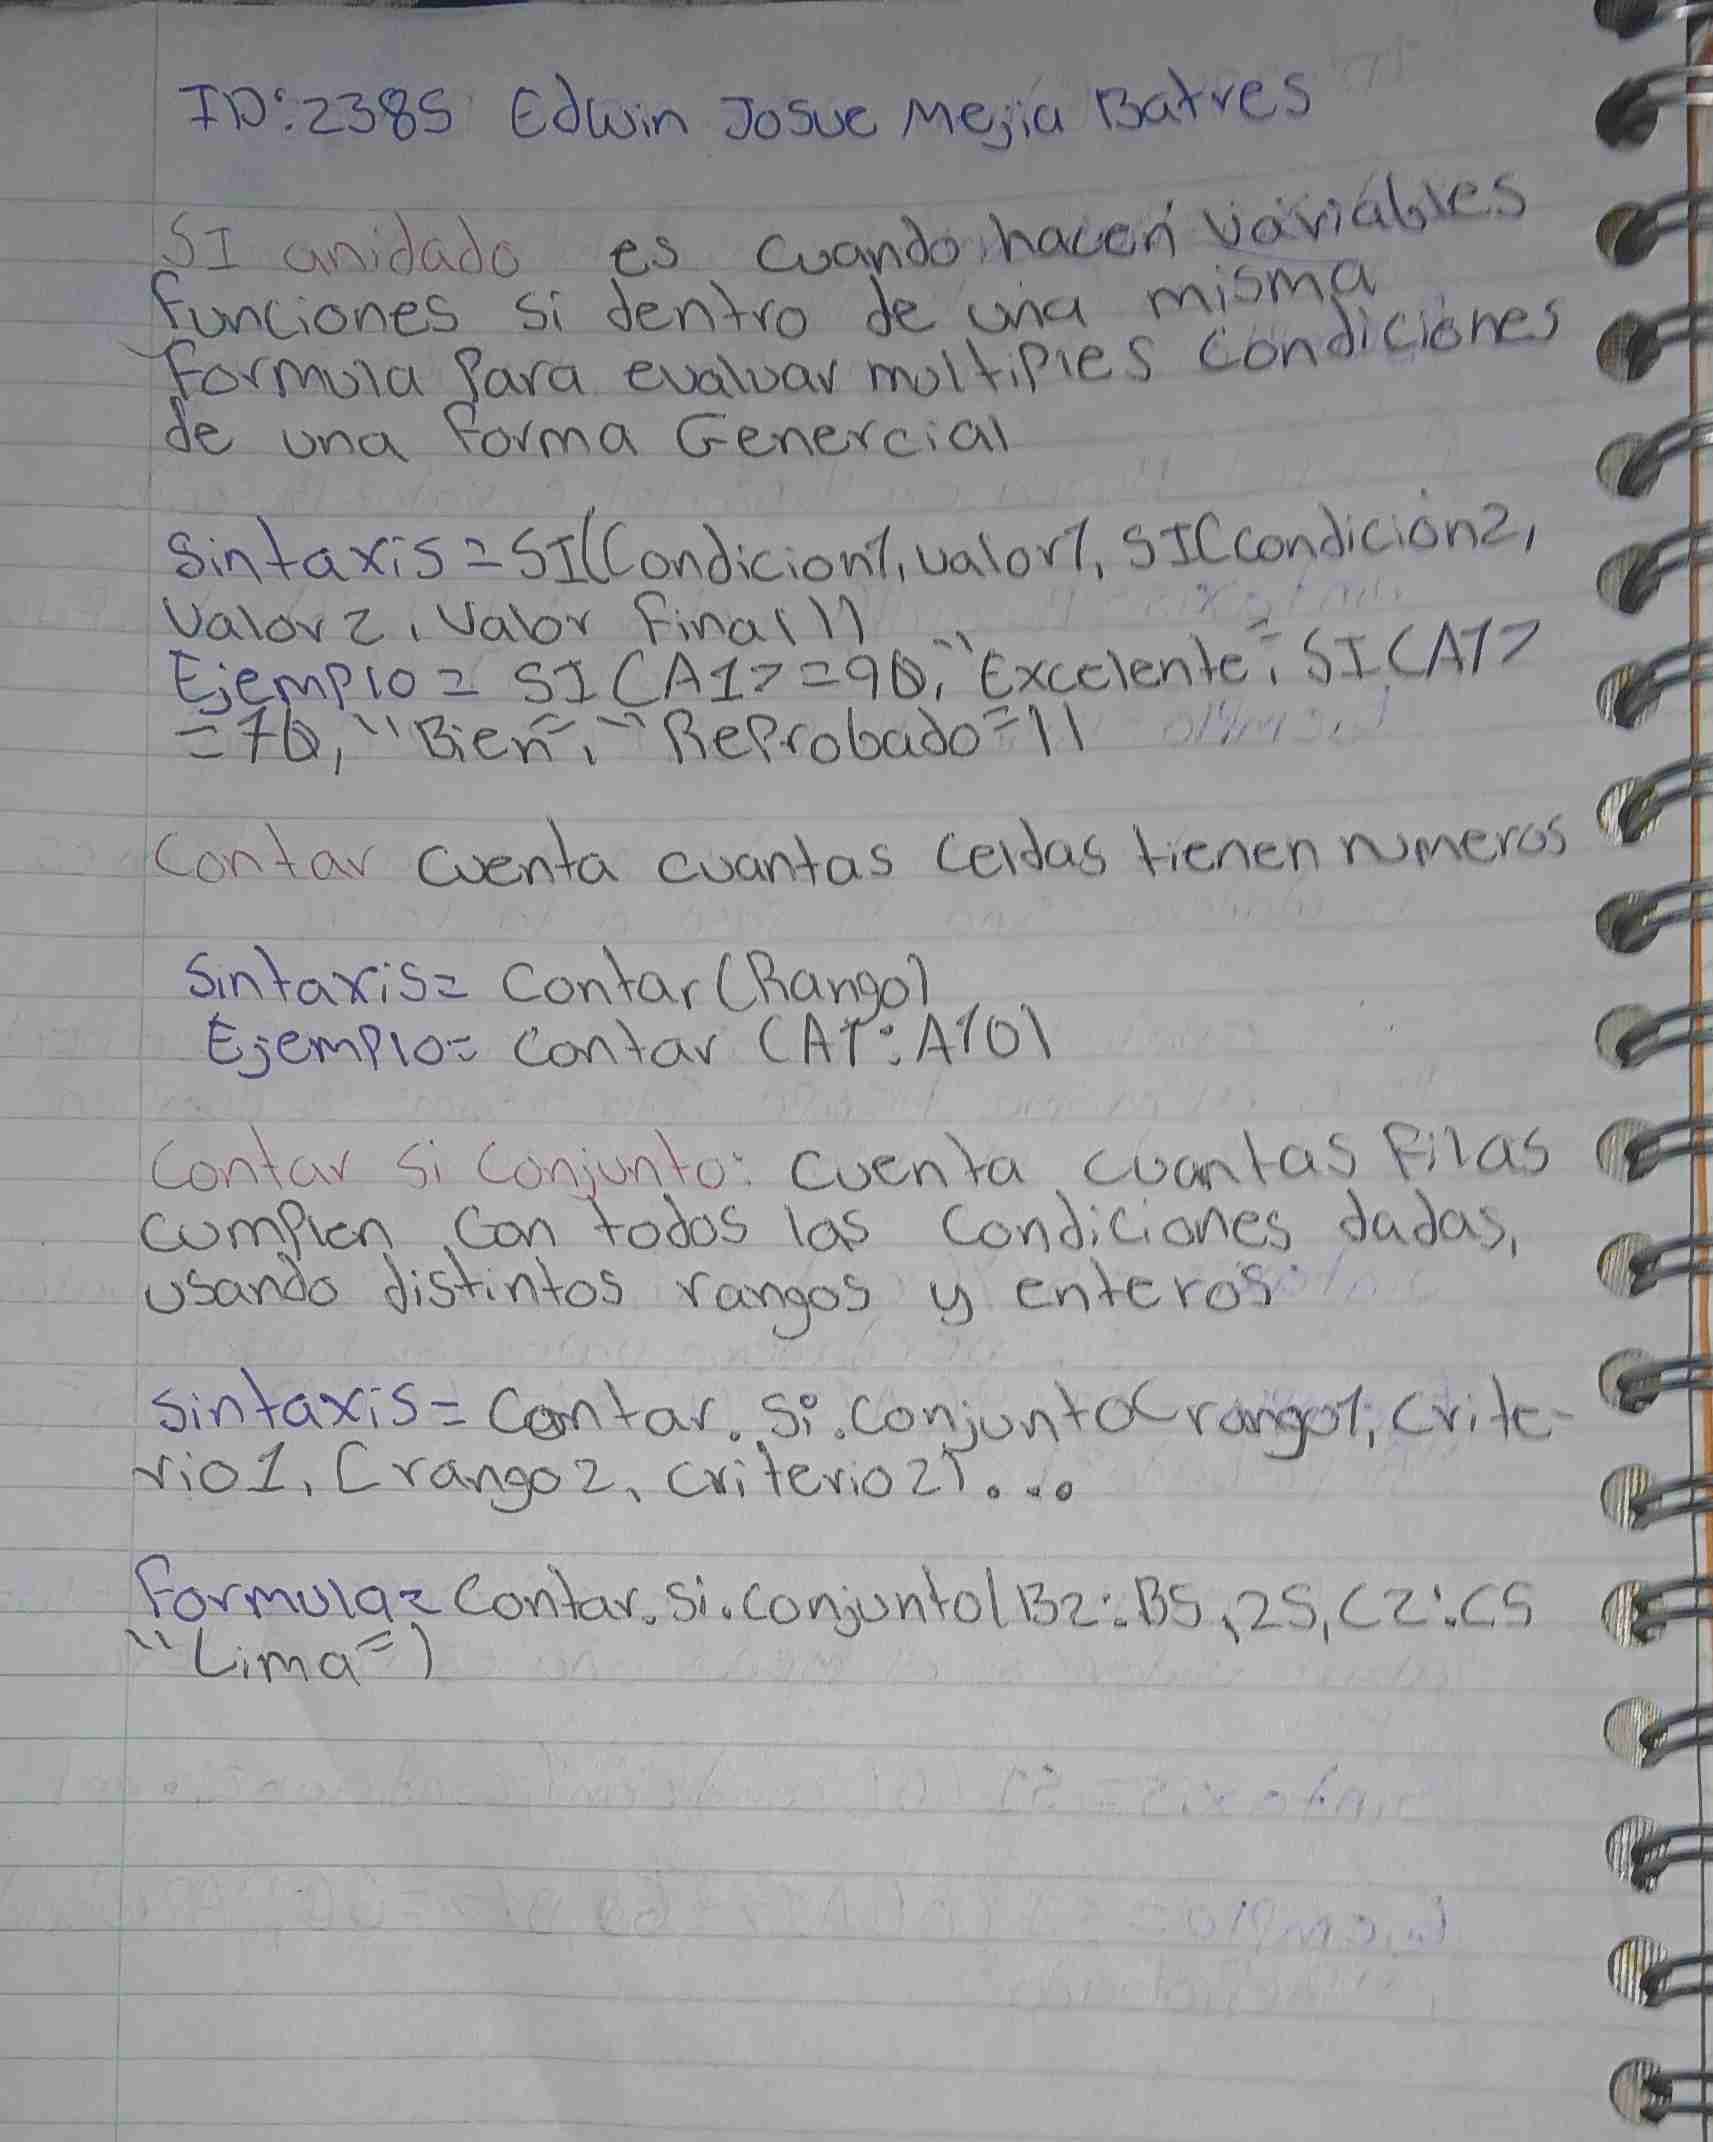 ID:2385 Edwin Josue Mejia Batres
SI anidado es cuando hacen variables
funciones si dentro de una misma
formula para evaluar multiples condiciones
de una forma Genercial
Sintaxis = SI(Condicion1, valor1, SI(condición2,
valor2, valor final))
Ejemplo = SI (A1>=90, "Excelente", SI (A1>
=70, "Bien", "Reprobado"))
Contar cuenta cuantas celdas tienen numeros
Sintaxis= Contar (Rango)
Ejemplo= Contar (A1:A10)
Contar si conjunto: cuenta cuantas filas
cumplen con todos las condiciones dadas,
usando distintos rangos y enteros
Sintaxis= Contar. Si. conjunto(rango1, crite-
rio1, [rango2, criterio2]...
Formula= Contar. Si. conjunto(B2:B5, 25, C2:C5
"Lima")